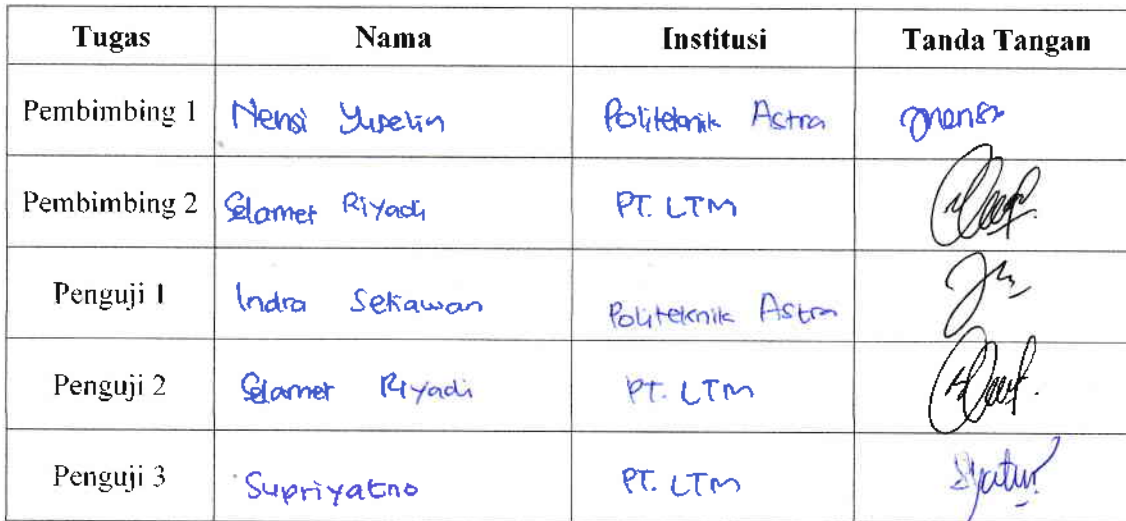 Tugas Nama Institusi Tanda Tangan
Pembimbing 1 Nensi Yuselin Politeknik Astra
Pembimbing 2 Selamet Riyadi PT. LTM
Penguji 1 Indra Setiawan Politeknik Astra
Penguji 2 Selamet Riyadi PT. LTM
Penguji 3 Supriyatno PT. LTM